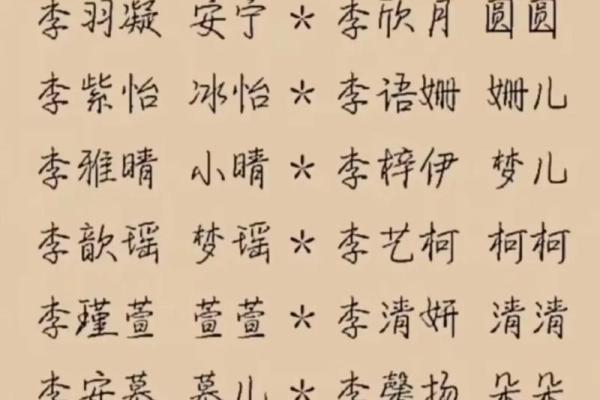 李羽凝 安宁 * 李欣月 圆圆
李紫怡 冰怡 * 李语姗 姗儿
李雅晴 小晴 * 李梓伊 梦儿
李歆瑶 梦瑶 * 李艺柯 柯柯
李瑾萱 萱萱 * 李清妍 清清
李安慕 慕儿 * 李馨扬 朵朵